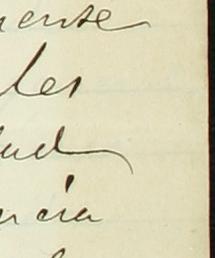 mente
les
lud
ncia